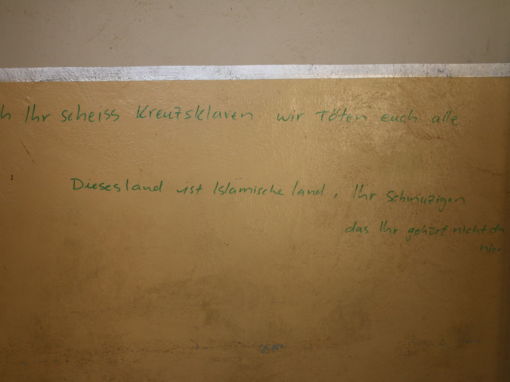 h Ihr scheiss Kreuzsklaven wir Töten euch alle
Dieses land ist Islamische land, Ihr Schmuzigen
das Ihr gehört nicht